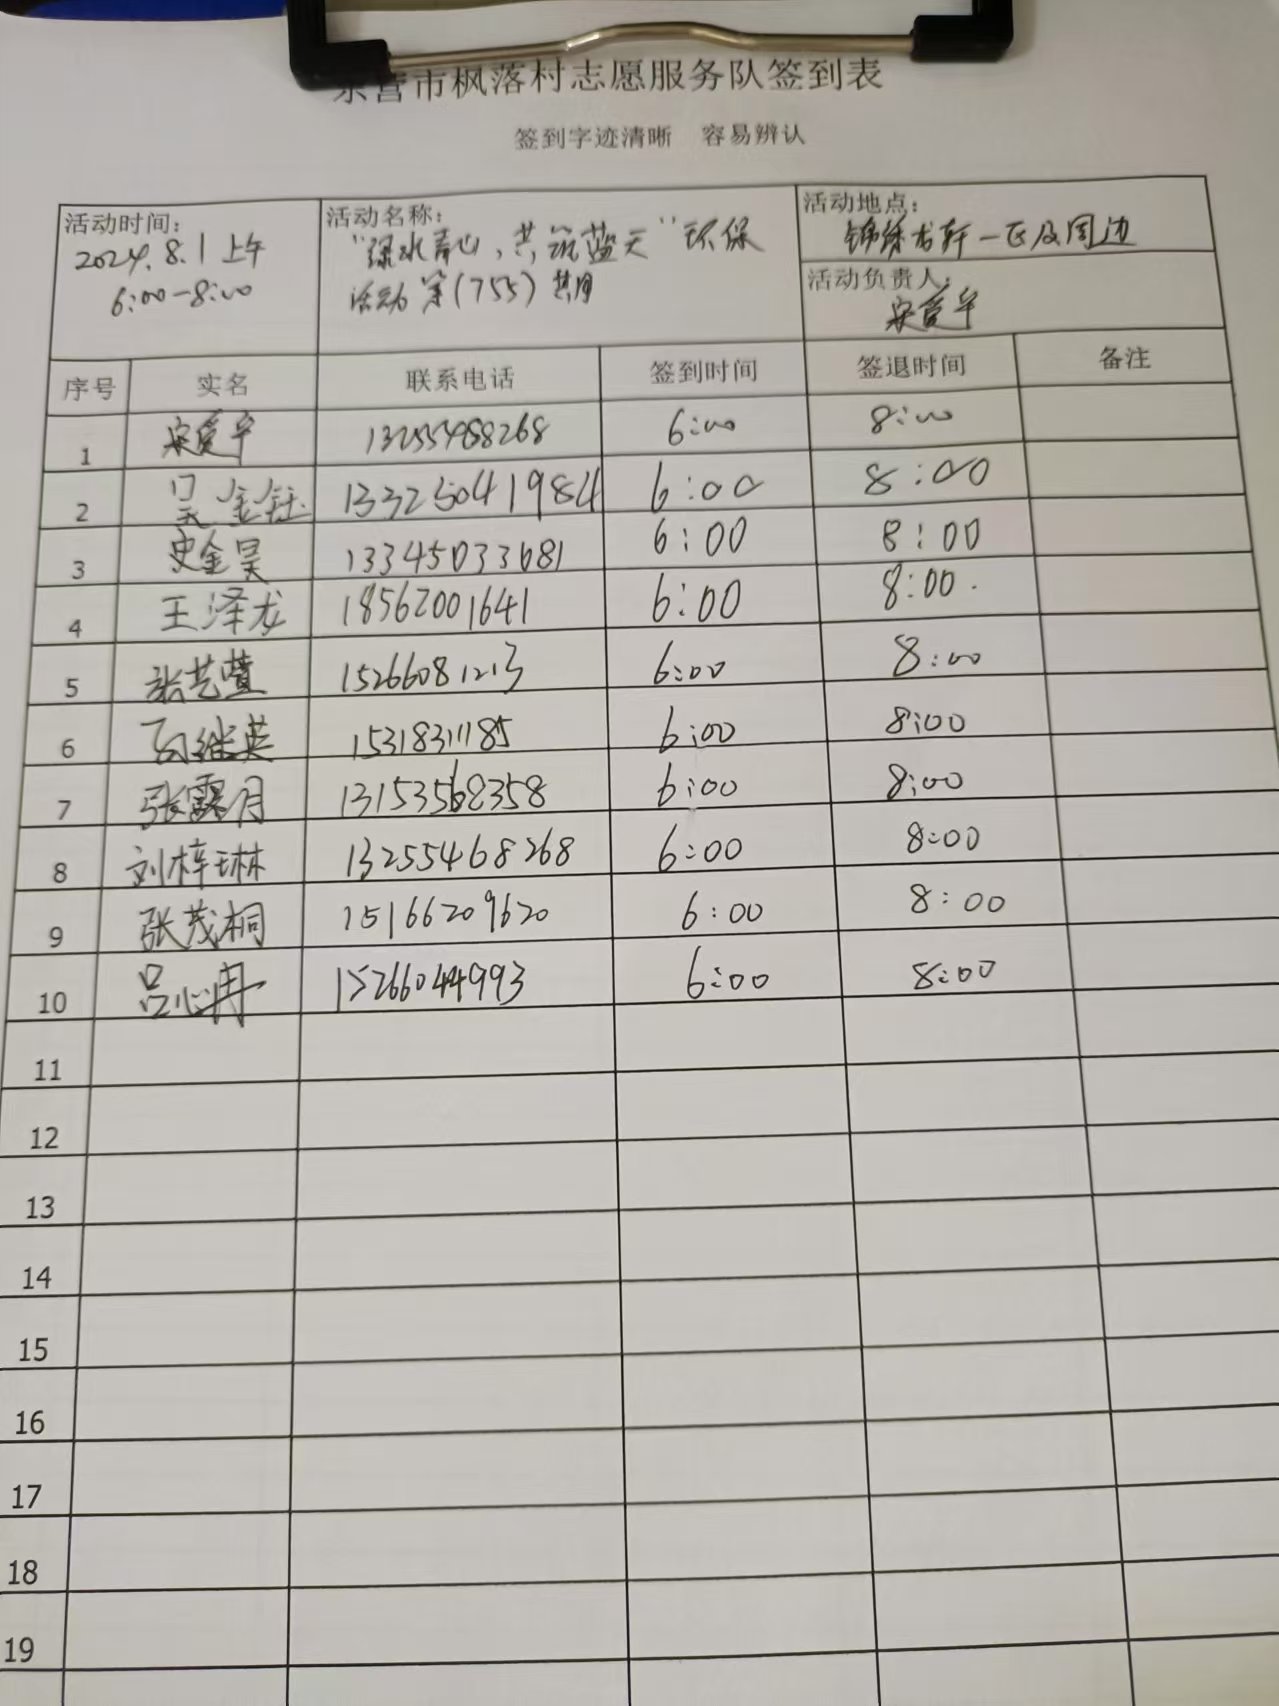 东营市枫落村志愿服务队签到表
签到字迹清晰 容易辨认
活动时间:
2024.8.1上午
6:00-8:00
活动名称:
"绿水青山,共筑蓝天"环保
活动 第(755)期
活动地点:
锦绣龙轩一区及周边
活动负责人:
宋爱军
序号 实名 联系电话 签到时间 签退时间 备注
1 宋爱军 13255488268 6:00 8:00
2 吴金钰 13325041984 6:00 8:00
3 史金昊 13345033681 6:00 8:00
4 王泽龙 18562001641 6:00 8:00.
5 张艺萱 15266081213 6:00 8:00
6 继英 15318311185 6:00 8:00
7 张露月 13153568358 6:00 8:00
8 刘梓琳 13255468268 6:00 8:00
9 张茂桐 15166209620 6:00 8:00
10 吕心冉 15266044993 6:00 8:00
11
12
13
14
15
16
17
18
19